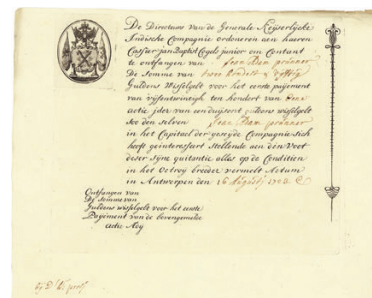 De Directeurs van de Generale Keyserlycke
Indische Compagnie ordoneren aen haeren
Cassier Jan Baptist Cogels junior om Contant
te ontfangen van
De Somme van twee hondert
Guldens Wisselgelt voor het eerste payement
van vijfentwintigh ten hondert van
actie jder van eenduysent guldens wisselgelt
soo den selven
in het Capitael der geseyde Compagnie sich
heeft geinteressert Stellende aen den Voet
deser syne quitantie alles op de Conditien
in het Octroy breeder vermelt Actum
in Antwerpen den 16 Augusty 1723
Ontfangen van
De Somme van
Guldens wisselgelt voor het eerste
Payement van de bovengemelde
actie